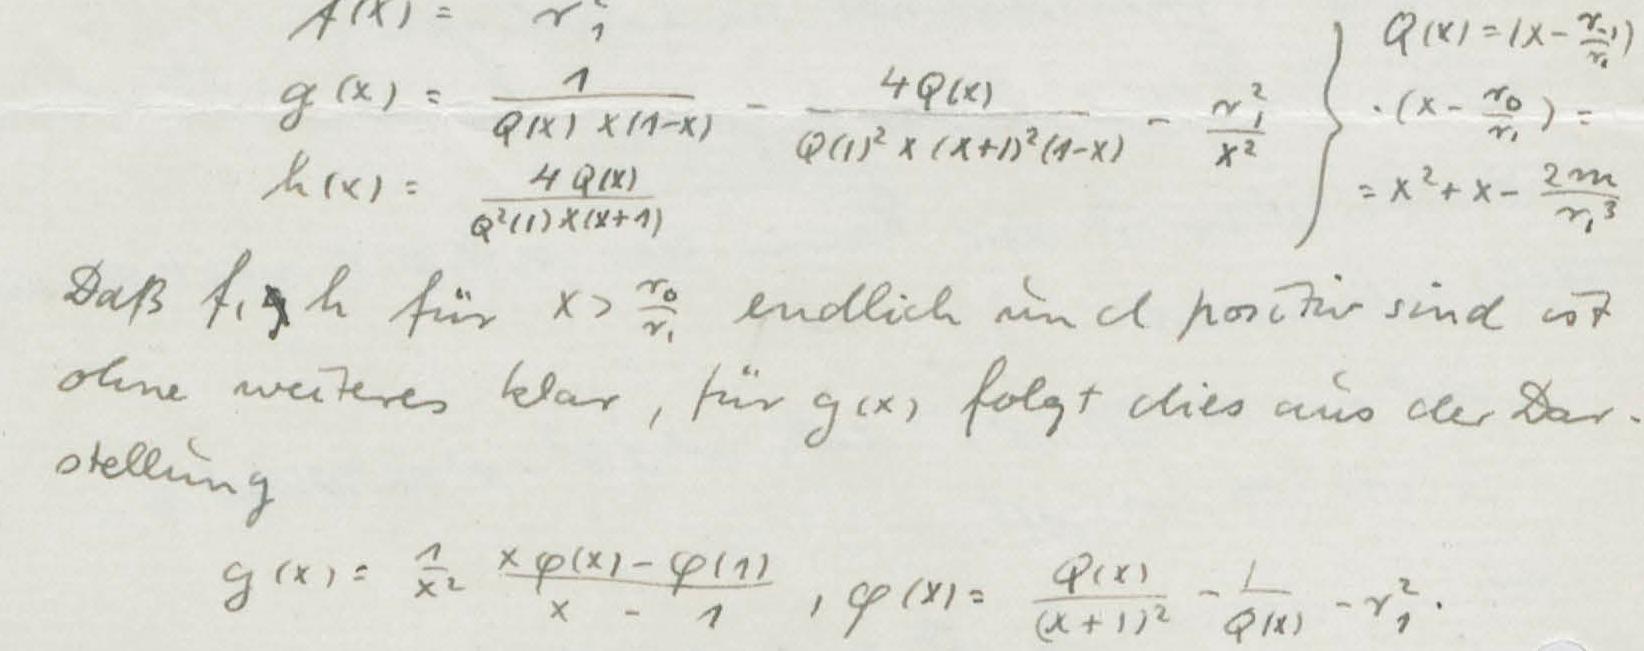 f(x) = r₁²
g(x) = 1/(Q(x) x(1-x)) - 4Q(x)/(Q(1)² x (x+1)²(1-x)) - r₁²/x² } Q(x) = (x - r₋₁/r₁) · (x - r₀/r₁) = = x² + x - 2m/r₁³
h(x) = 4Q(x)/(Q²(1) x(x+1))
Daß f, h für x > r₀/r₁ endlich und positiv sind ist
ohne weiteres klar, für g(x) folgt dies aus der Dar-
stellung
g(x) = 1/x² (xφ(x) - φ(1))/(x - 1), φ(x) = Q(x)/(x+1)² - 1/Q(x) - r₁².